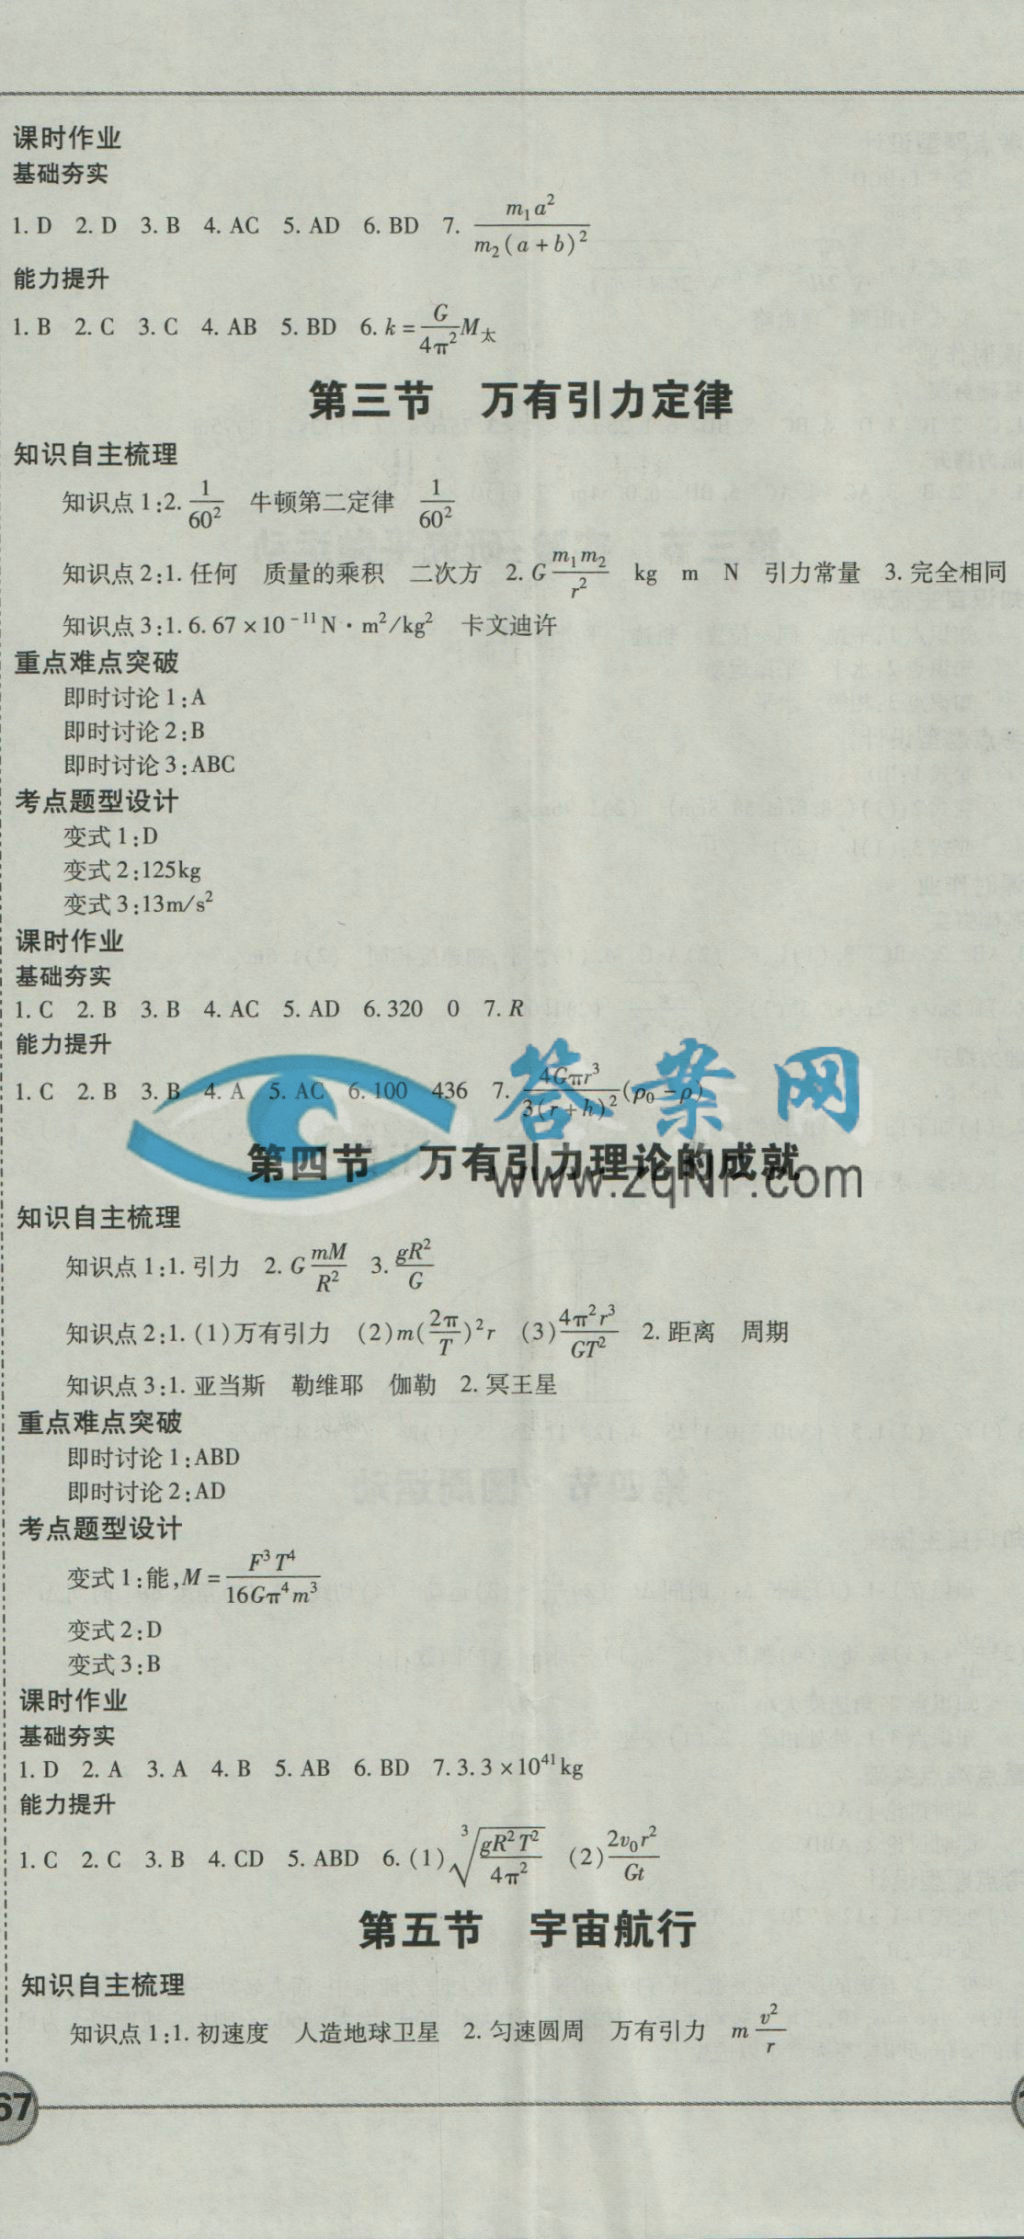 课时作业
基础夯实
1. D 2. D 3. B 4. AC 5. AD 6. BD 7. $\frac{m_1a^2}{m_2(a+b)^2}$
能力提升
1. B 2. C 3. C 4. AB 5. BD 6. $k=\frac{G}{4\pi^2}M_太$
第三节 万有引力定律
知识自主梳理
知识点1:2. $\frac{1}{60^2}$ 牛顿第二定律 $\frac{1}{60^2}$
知识点2:1. 任何 质量的乘积 二次方 2. $G\frac{m_1m_2}{r^2}$ kg m N 引力常量 3. 完全相同
知识点3:1. $6.67\times10^{-11}$N·m²/kg² 卡文迪许
重点难点突破
即时讨论1:A
即时讨论2:B
即时讨论3:ABC
考点题型设计
变式1:D
变式2:125kg
变式3:13m/s²
课时作业
基础夯实
1. C 2. B 3. B 4. AC 5. AD 6. 320 0 7. R
能力提升
1. C 2. B 3. B 4. A 5. AC 6. 100 436 7. $\frac{4G\pi r^3}{3(r+h)^2}(\rho_0-\rho)$
答案网
第四节 万有引力理论的成就
www.zqnf.com
知识自主梳理
知识点1:1. 引力 2. $G\frac{mM}{R^2}$ 3. $\frac{gR^2}{G}$
知识点2:1. (1)万有引力 (2)$m(\frac{2\pi}{T})^2r$ (3)$\frac{4\pi^2r^3}{GT^2}$ 2. 距离 周期
知识点3:1. 亚当斯 勒维耶 伽勒 2. 冥王星
重点难点突破
即时讨论1:ABD
即时讨论2:AD
考点题型设计
变式1:能,$M=\frac{F^3T^4}{16G\pi^4m^3}$
变式2:D
变式3:B
课时作业
基础夯实
1. D 2. A 3. A 4. B 5. AB 6. BD 7. $3.3\times10^{41}$kg
能力提升
1. C 2. C 3. B 4. CD 5. ABD 6. (1)$\sqrt[3]{\frac{gR^2T^2}{4\pi^2}}$ (2)$\frac{2v_0r^2}{Gt}$
第五节 宇宙航行
知识自主梳理
知识点1:1. 初速度 人造地球卫星 2. 匀速圆周 万有引力 $m\frac{v^2}{r}$
67